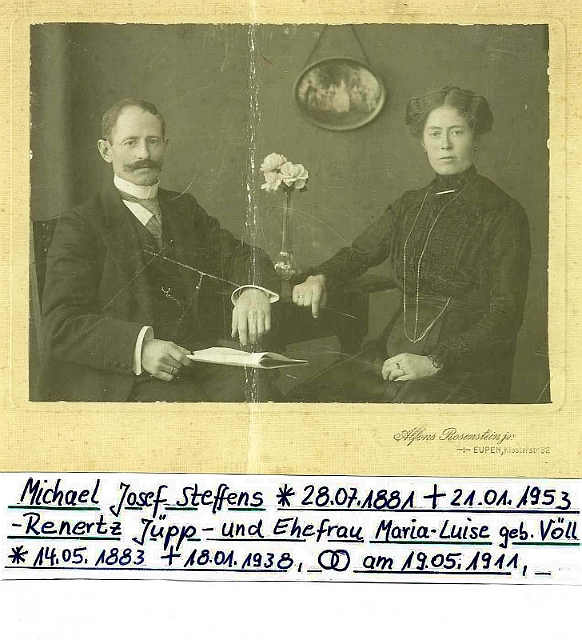 Alfons Rosenstein jr.
EUPEN, Klosterstr. 82
Michael Josef Steffens * 28.07.1881 + 21.01.1953
-Renertz Jüpp - und Ehefrau Maria-Luise geb. Völl
* 14.05.1883 + 18.01.1938, ⚭ am 19.05.1911,_